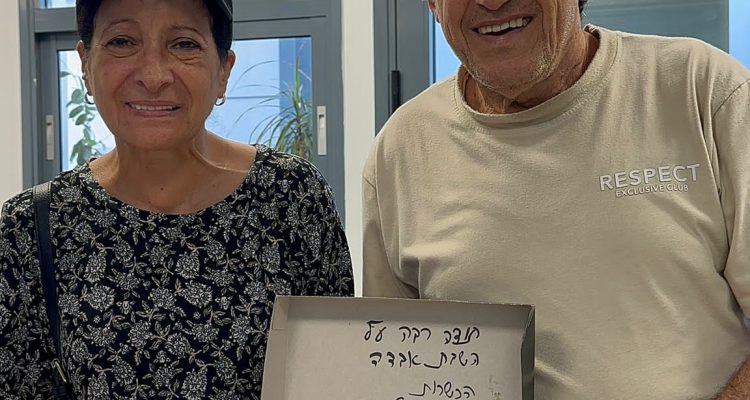 RESPECT
EXCLUSIVE CLUB
תודה רבה על
השבת אבדה
הכשרות